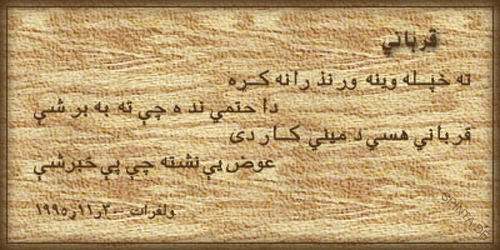 قرباني
ته خپله وينه ور نذرانه کړه
دا حتمي نده چې ته به بر شې
قرباني هسې د ميني کار دی
عوض يې نشته چې پې خبر شې
ولفرات ٢٠ر١١ر١٩٩٥